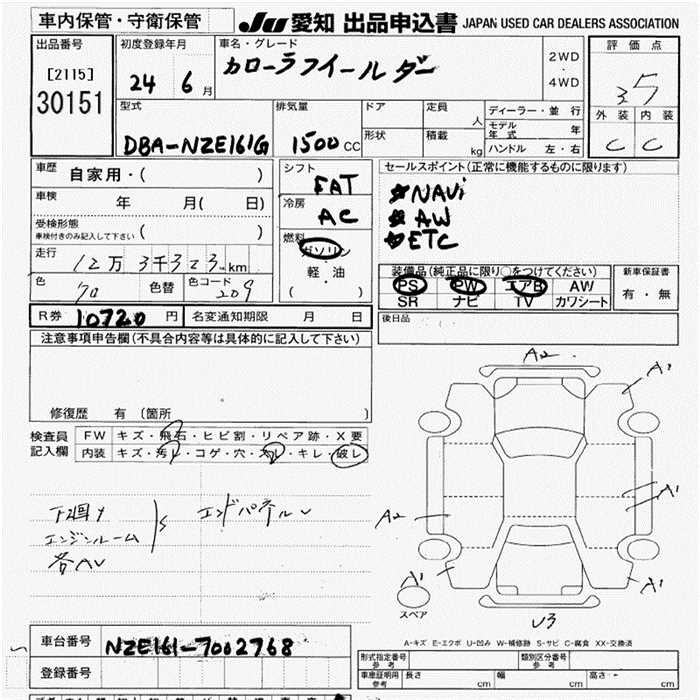 車内保管・守衛保管
JU 愛知 出品申込書 JAPAN USED CAR DEALERS ASSOCIATION
出品番号
[2115]
30151
初度登録年月
24 6月
車名・グレード
カローラフィールダー
2WD
・
4WD
評価点
3.5
外装 内装
C C
型式
DBA-NZE161G
排気量
1500cc
ドア
形状
定員 人
積載 kg
ディーラー・並行
モデル年式 年
ハンドル 左・右
車歴 自家用・( )
車検 年 月( 日)
受検形態
車検付きのみ記入して下さい ( )
走行 12万3千323km
色 70 色替 色コード 209
シフト
FAT
冷房
AC
燃料
ガソリン
・
軽・油
( )
セールスポイント(正常に機能するものに限ります)
NAVi
AW
ETC
装備品(純正品に限り○をつけてください)
PS PW エアB AW
SR ナビ TV カワシート
新車保証書
有・無
R券 10720円 名変通知期限 月 日
後日品
注意事項申告欄(不具合内容等は具体的に記入して下さい)
修復歴 有 (箇所 )
検査員記入欄
FW キズ・飛石・ヒビ割・リペア跡・X要
内装 キズ・汚レ・コゲ・穴・ ・キレ・破レ
下廻り
エンジンルーム
S
エンドパネルレ
各AU
A2
A1
A1
A2
A1
A1
U3
スペア
A-キズ E-エクボ U-凹み W-補修跡 S-サビ C-腐食 XX-交換済
車台番号 NZE161-7002768
登録番号
形式指定番号 参考
類別区分番号 参考
車庫証明用 参考 長さ cm 幅 cm 高さ cm